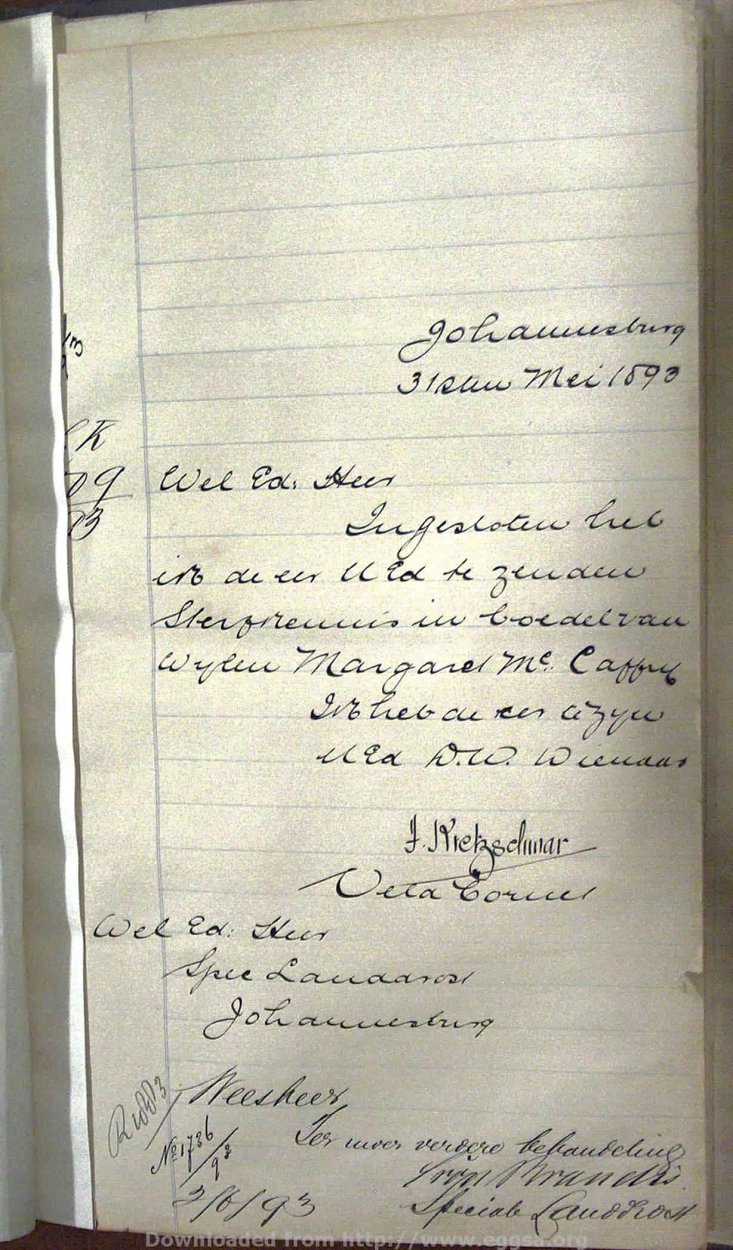 Johannesburg
31sten Mei 1893
K
9
Wel Ed. Heer
Ingesloten heb
ik de eer UEd te zenden
Sterfkennis in boedel van
Wylen Margaret Mc. Caffry
Ik heb de eer te zyn
UEd D.W. Dienaar
F. Kretzschmar
Veld Cornet
Wel Ed. Heer
Spec Landdrost
Johannesburg
Weesheer
No 1736/93
Ter uwer verdere behandeling
Brandis
2/6/93
Speciale Landdrost
Downloaded from http://www.eggsa.org